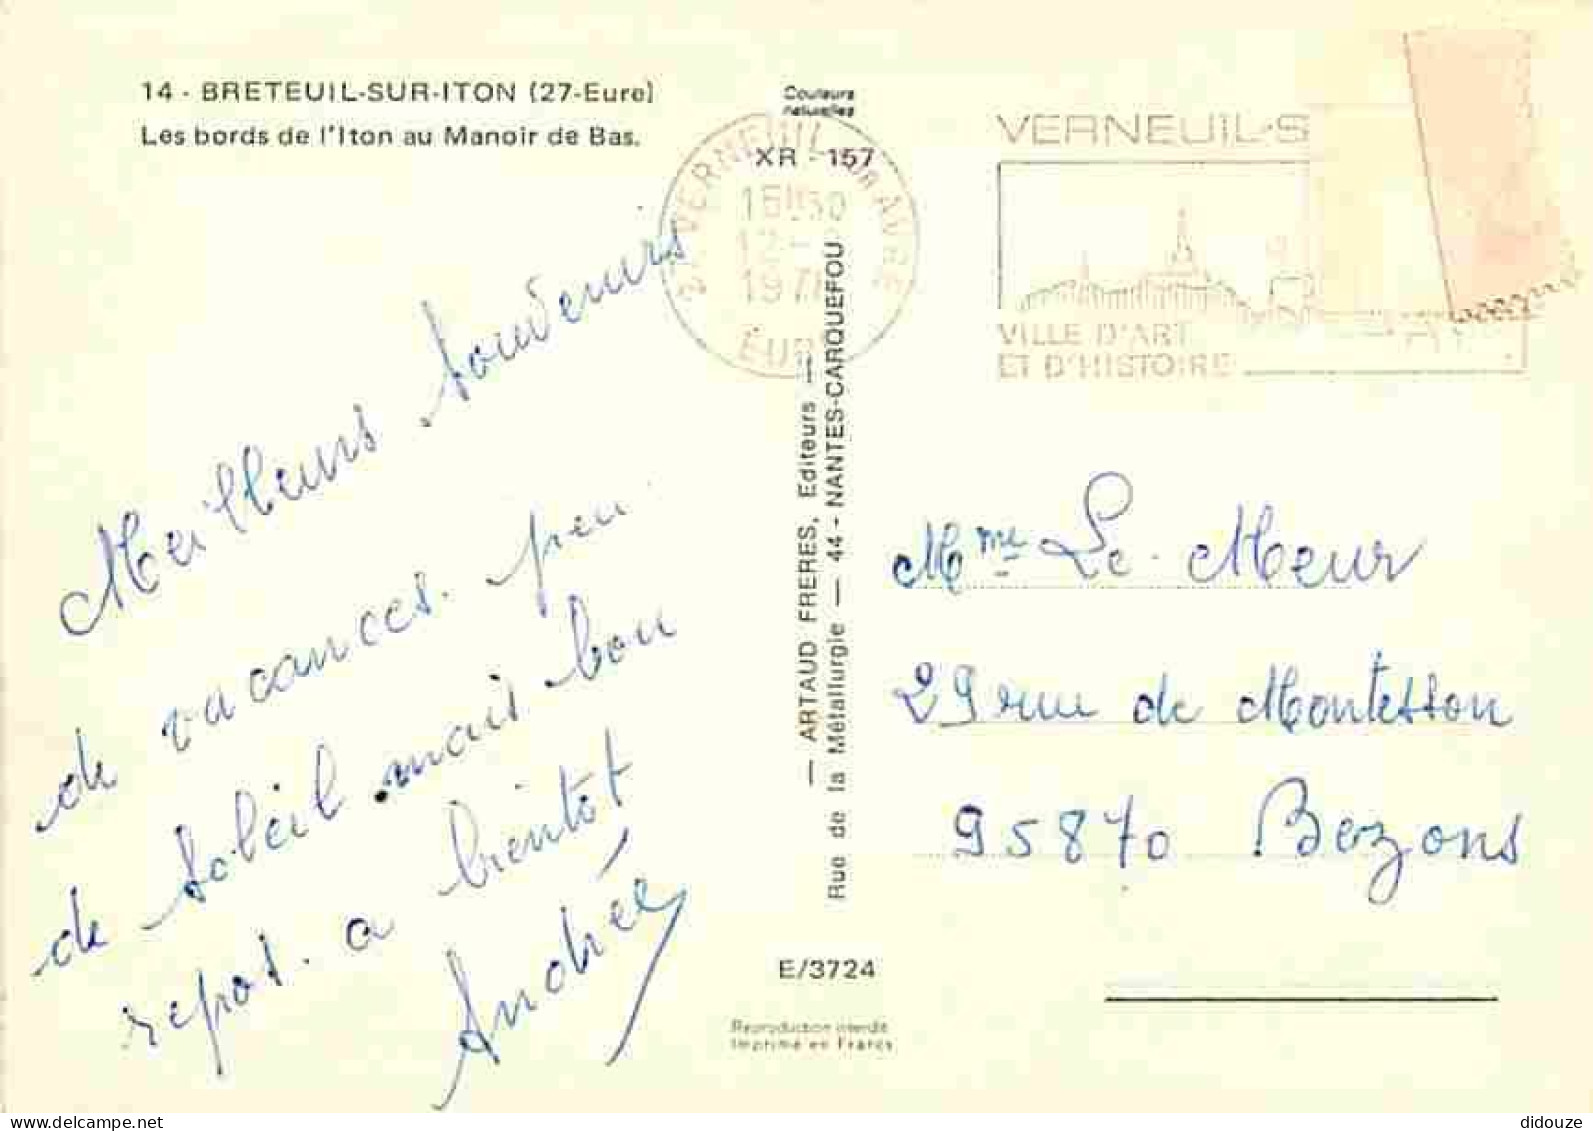 14 - BRETEUIL-SUR-ITON (27-Eure)
Les bords de l'Iton au Manoir de Bas.
Couleurs
naturelles
XR - 157
VERNEUIL SUR AVRE
EURE
VERNEUIL-S
VILLE D'ART
ET D'HISTOIRE
Meilleurs souvenirs
de vacances. peu
de soleil mais bon
repos. a bientot
Andrée
— ARTAUD FRERES, Editeurs —
Rue de la Métallurgie — 44 - NANTES-CARQUEFOU
E/3724
Reproduction interdite
Imprimé en France
Mme Le Meur
29 rue de Montesson
95870 Bezons
delcampe.net
didouze